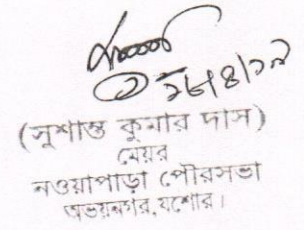 ২৮/৪/১৯
(সুশান্ত কুমার দাস)
মেয়র
নওয়াপাড়া পৌরসভা
অভয়নগর, যশোর।